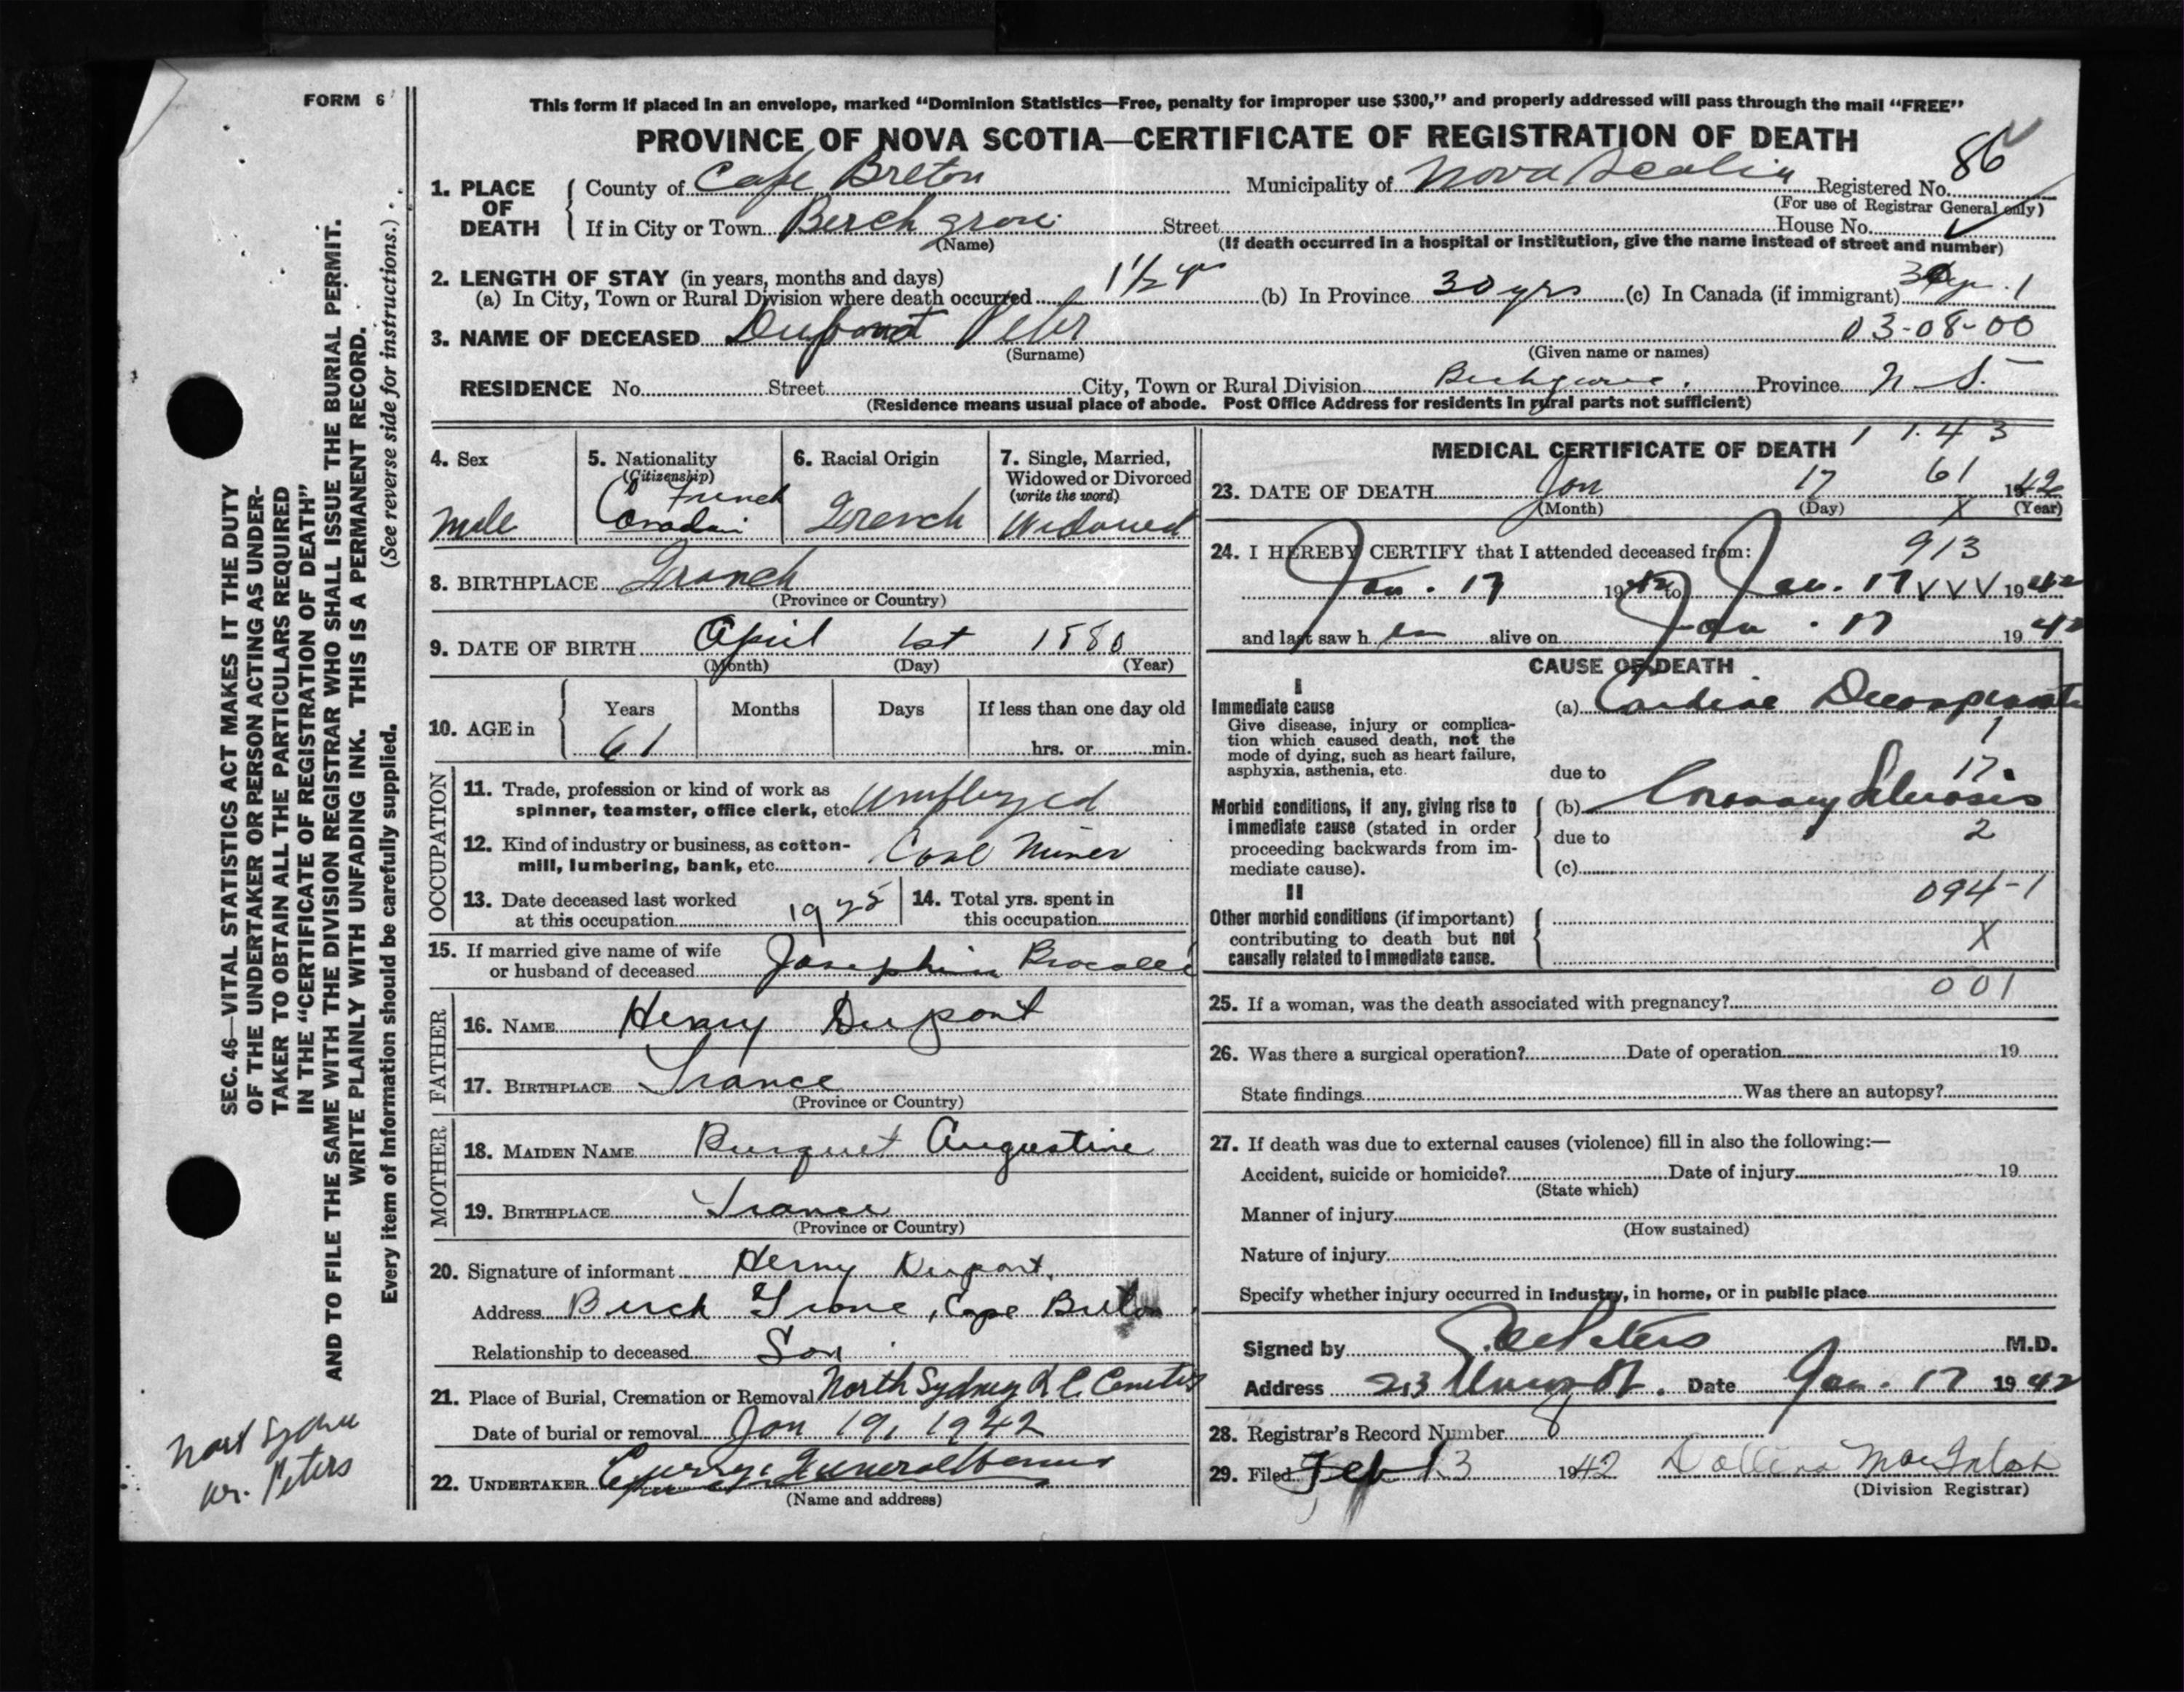 FORM 6
This form if placed in an envelope, marked “Dominion Statistics—Free, penalty for improper use $300,” and properly addressed will pass through the mail “FREE”
PROVINCE OF NOVA SCOTIA—CERTIFICATE OF REGISTRATION OF DEATH
86
1. PLACE OF DEATH
County of Cape Breton Municipality of Nova Scotia Registered No.
(For use of Registrar General only)
If in City or Town Berch grove Street House No.
(Name) (If death occurred in a hospital or institution, give the name instead of street and number)
2. LENGTH OF STAY (in years, months and days)
(a) In City, Town or Rural Division where death occurred 1½ yr (b) In Province 30 yrs (c) In Canada (if immigrant) 30 yr. 1
03-08-00
3. NAME OF DECEASED Dupont Peter
(Surname) (Given name or names)
RESIDENCE No. Street City, Town or Rural Division Province N. S.
(Residence means usual place of abode. Post Office Address for residents in rural parts not sufficient)
4. Sex
Male
5. Nationality
(Citizenship)
French
Canadain
6. Racial Origin
French
7. Single, Married,
Widowed or Divorced
(write the word)
Widowed
8. BIRTHPLACE Franch
(Province or Country)
9. DATE OF BIRTH April 1st 1880
(Month) (Day) (Year)
10. AGE in
Years Months Days If less than one day old
61 hrs. or min.
OCCUPATION
11. Trade, profession or kind of work as
spinner, teamster, office clerk, etc.
12. Kind of industry or business, as cotton-
mill, lumbering, bank, etc. Coal Miner
13. Date deceased last worked
at this occupation 1925
14. Total yrs. spent in
this occupation
15. If married give name of wife
or husband of deceased Josephine
FATHER
16. NAME Henry Dupont
17. BIRTHPLACE France
(Province or Country)
MOTHER
18. MAIDEN NAME Busquet Augustine
19. BIRTHPLACE France
(Province or Country)
20. Signature of informant Henry Dupont.
Address Birch Grove, Cape Breton
Relationship to deceased Son
21. Place of Burial, Cremation or Removal North Sydney R C
Date of burial or removal Jan 19, 1942
22. UNDERTAKER
(Name and address)
MEDICAL CERTIFICATE OF DEATH 1 1 4 3
61
23. DATE OF DEATH Jan 17 1942
(Month) (Day) X (Year)
24. I HEREBY CERTIFY that I attended deceased from: 913
Jan. 17 1942 to Jan. 17 VVV 1942
and last saw h im alive on Jan. 17 1942
CAUSE OF DEATH
I
Immediate cause
Give disease, injury or complica-
tion which caused death, not the
mode of dying, such as heart failure,
asphyxia, asthenia, etc.
(a) Cardiac Decompensation
1
due to 17.
Morbid conditions, if any, giving rise to
immediate cause (stated in order
proceeding backwards from im-
mediate cause).
(b) Coronary Sclerosis
due to 2
(c)
094-1
II
Other morbid conditions (if important)
contributing to death but not
causally related to immediate cause.
X
001
25. If a woman, was the death associated with pregnancy?
26. Was there a surgical operation? Date of operation 19
State findings Was there an autopsy?
27. If death was due to external causes (violence) fill in also the following:—
Accident, suicide or homicide? Date of injury 19
(State which)
Manner of injury
(How sustained)
Nature of injury
Specify whether injury occurred in Industry, in home, or in public place
Signed by Peters M.D.
Address Date Jan. 17 1942
28. Registrar's Record Number 8
29. Filed Feb 13 1942 Dollina MacIntosh
(Division Registrar)
SEC. 46—VITAL STATISTICS ACT MAKES IT THE DUTY
OF THE UNDERTAKER OR PERSON ACTING AS UNDER-
TAKER TO OBTAIN ALL THE PARTICULARS REQUIRED
IN THE “CERTIFICATE OF REGISTRATION OF DEATH”
AND TO FILE THE SAME WITH THE DIVISION REGISTRAR WHO SHALL ISSUE THE BURIAL PERMIT.
WRITE PLAINLY WITH UNFADING INK. THIS IS A PERMANENT RECORD.
Every item of information should be carefully supplied. (See reverse side for instructions.)
Peters